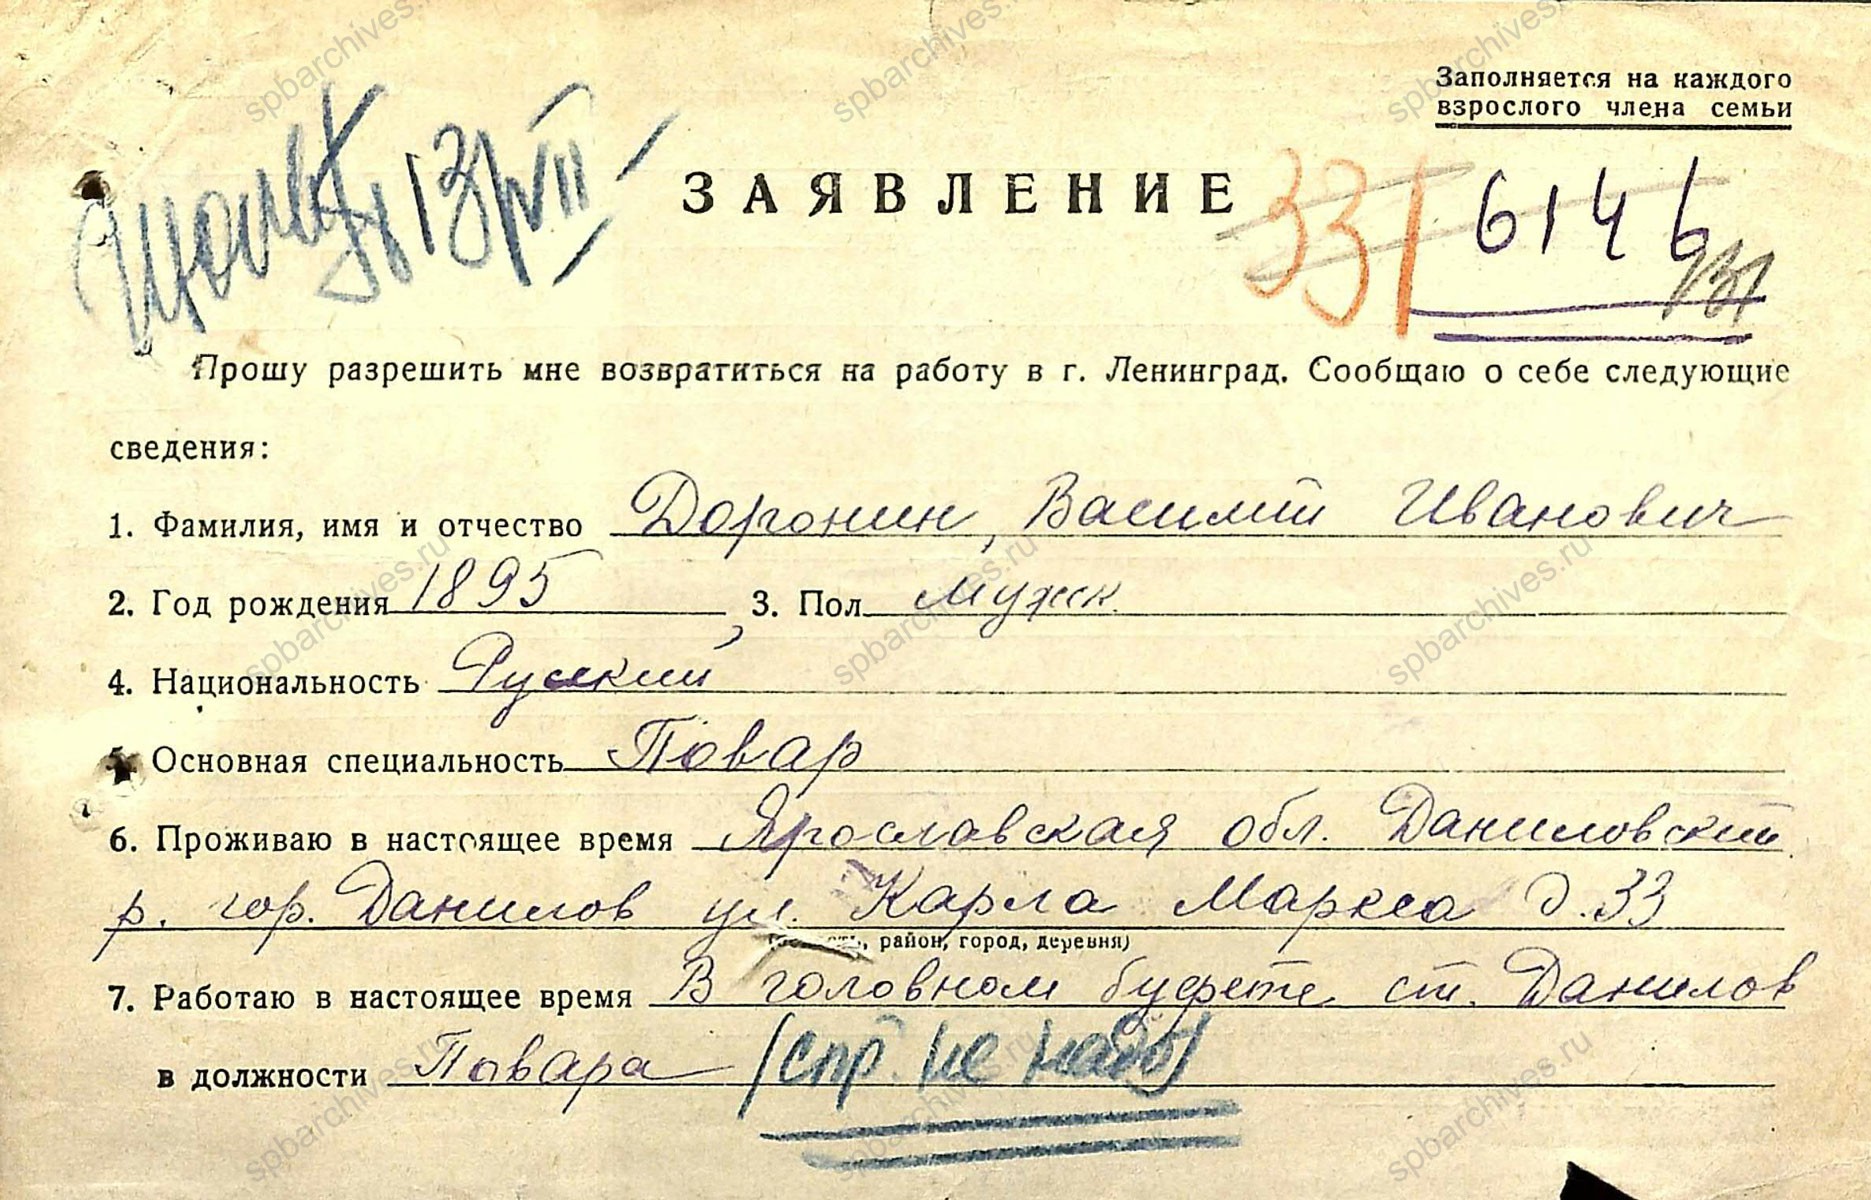 Заполняется на каждого
взрослого члена семьи
13/VII
ЗАЯВЛЕНИЕ
331 6146
131
Прошу разрешить мне возвратиться на работу в г. Ленинград. Сообщаю о себе следующие
сведения:
1. Фамилия, имя и отчество Доронин, Василий Иванович
2. Год рождения 1895, 3. Пол Мужк.
4. Национальность Русский
5. Основная специальность Повар
6. Проживаю в настоящее время Ярославская обл. Даниловский
р. гор. Данилов ул. Карла Маркса д. 33
(область, район, город, деревня)
7. Работаю в настоящее время В головном буфете ст. Данилов
в должности Повара (спр. не надо)
spbarchives.ru